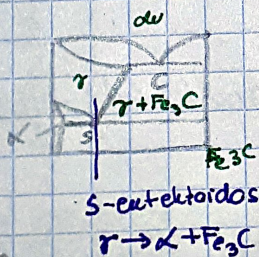 γ
C
γ+Fe₃C
α
S
Fe₃C
S-eutektoidos
γ→α+Fe₃C